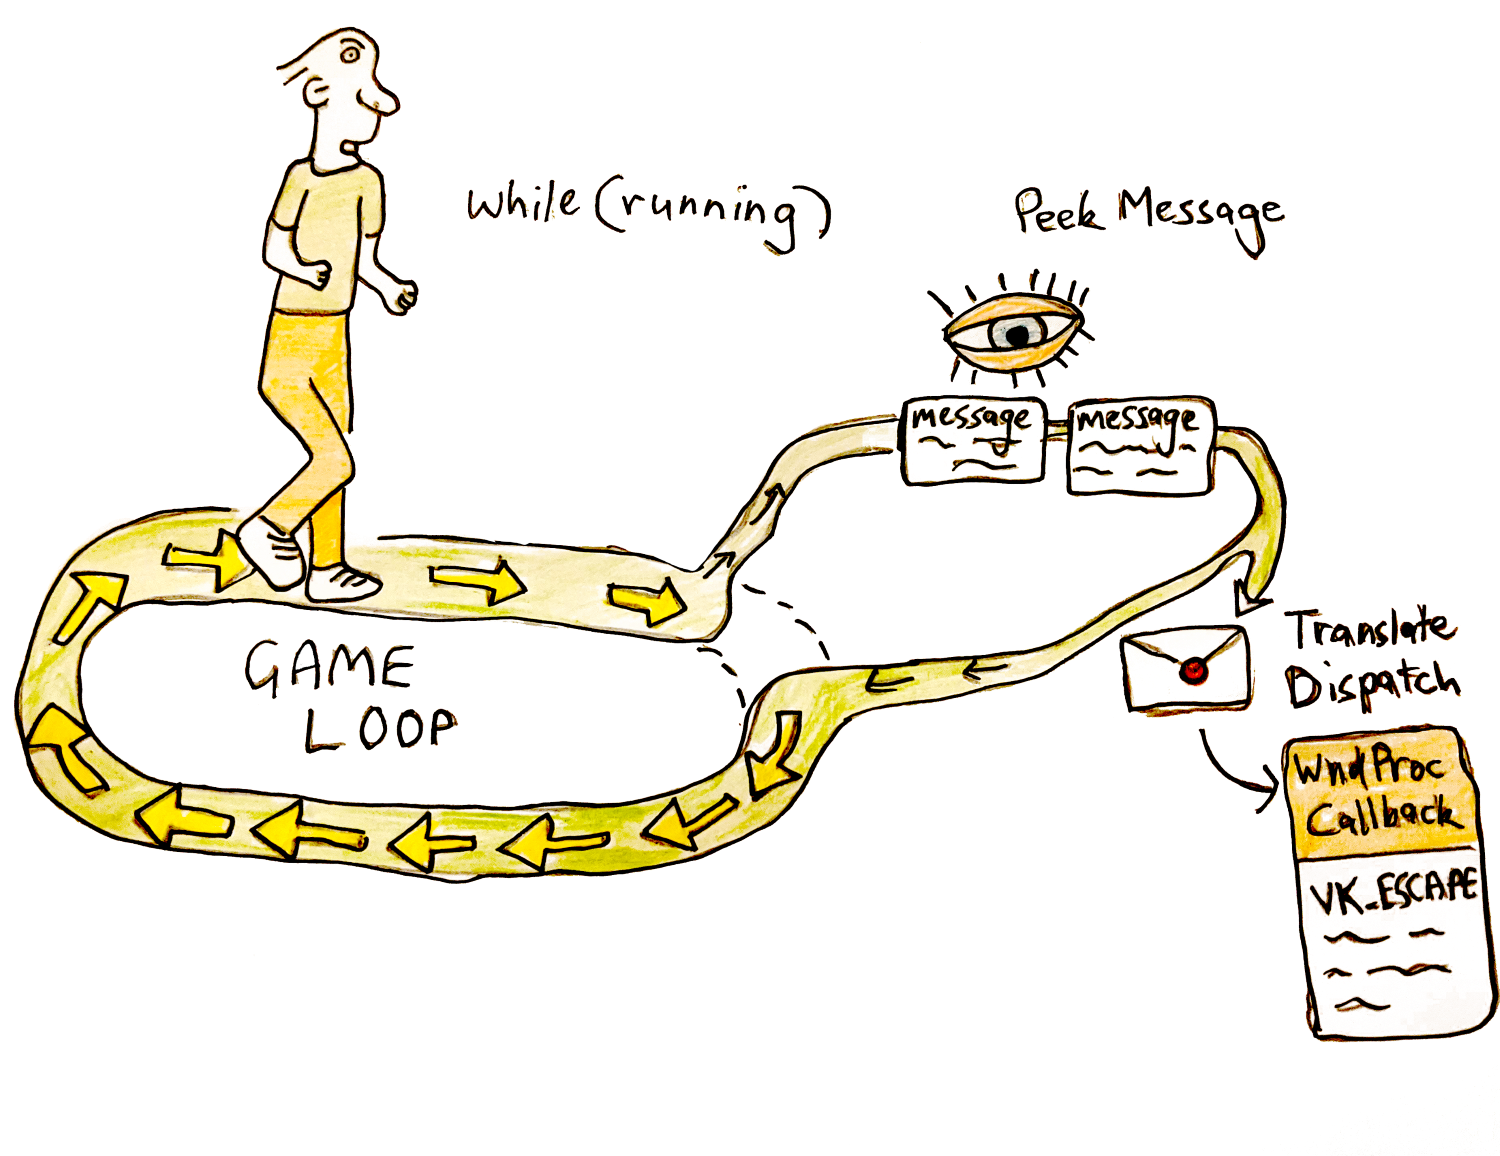 while (running)
Peek Message
message
message
GAME
LOOP
Translate
Dispatch
WndProc
Callback
VK_ESCAPE